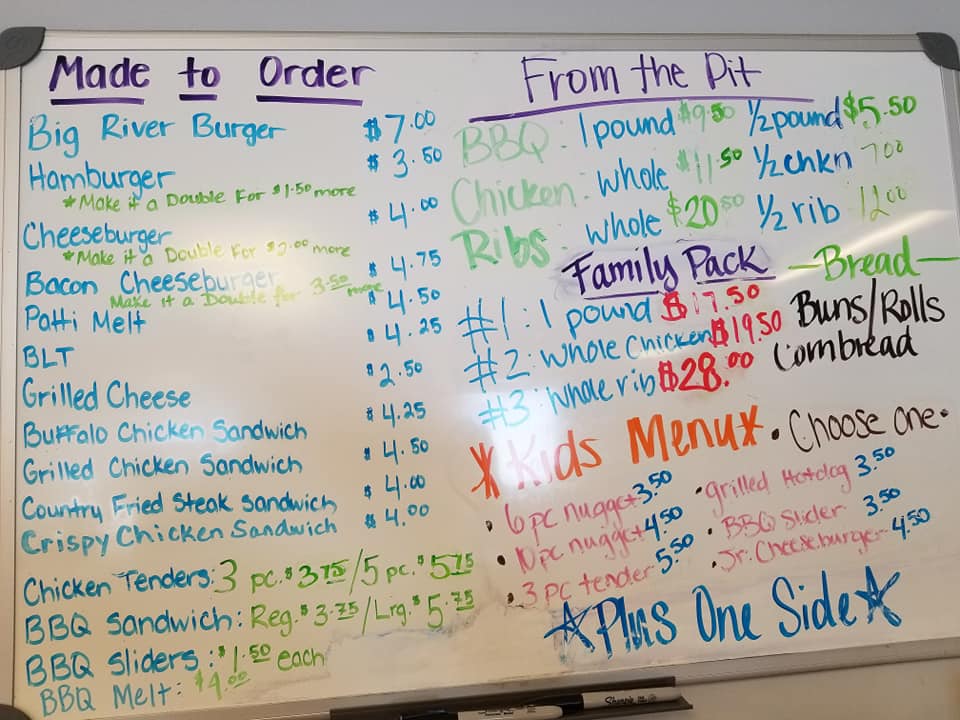 Made to Order
Big River Burger $7.00
Hamburger $3.50
*Make it a Double For $1.50 more
Cheeseburger $4.00
*Make it a Double For $2.00 more
Bacon Cheeseburger $4.75
Make it a Double for 3.50 more
Patti Melt $4.50
BLT $4.25
Grilled Cheese $2.50
Buffalo Chicken Sandwich $4.25
Grilled Chicken Sandwich $4.50
Country Fried Steak Sandwich $4.00
Crispy Chicken Sandwich $4.00
Chicken Tenders: 3 pc. $3.75/5 pc. $5.75
BBQ Sandwich: Reg. $3.75/Lrg. $5.75
BBQ Sliders: $1.50 each
BBQ Melt: $4.00
From the Pit
BBQ: 1 pound $9.50 1/2 pound $5.50
Chicken: whole $11.50 1/2 chkn 7.00
Ribs: whole $20.50 1/2 rib 12.00
Family Pack
#1: 1 pound $17.50
#2: whole chicken $19.50
#3: whole rib $28.00
—Bread—
Buns/Rolls
Cornbread
*Kids Menu* • Choose one •
• 6 pc nugget 3.50
• 10 pc nugget 4.50
• 3 pc tender 5.50
• grilled Hotdog 3.50
• BBQ Slider 3.50
• Jr. Cheeseburger 4.50
☆Plus One Side☆
Sharpie